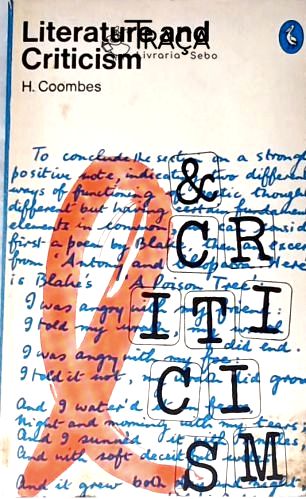 Literature and
Criticism
TRAÇA
Livraria Sebo
H. Coombes
To conclude the section on a strong
positive note, indicating two different
ways of functioning of poetic thought
different but having certain fundamental
elements in common, consider
first a poem by Blake, then an excerpt
from 'Antony and Cleopatra'. Here
is Blake's 'A Poison Tree'.
I was angry with my friend:
I told my wrath, my wrath did end.
I was angry with my foe:
I told it not, my wrath did grow.
And I water'd it in fears,
Night and morning with my tears;
And I sunned it with smiles,
And with soft deceitful wiles.
And it grew both day and night,
&
CR
ITI
CI
SM